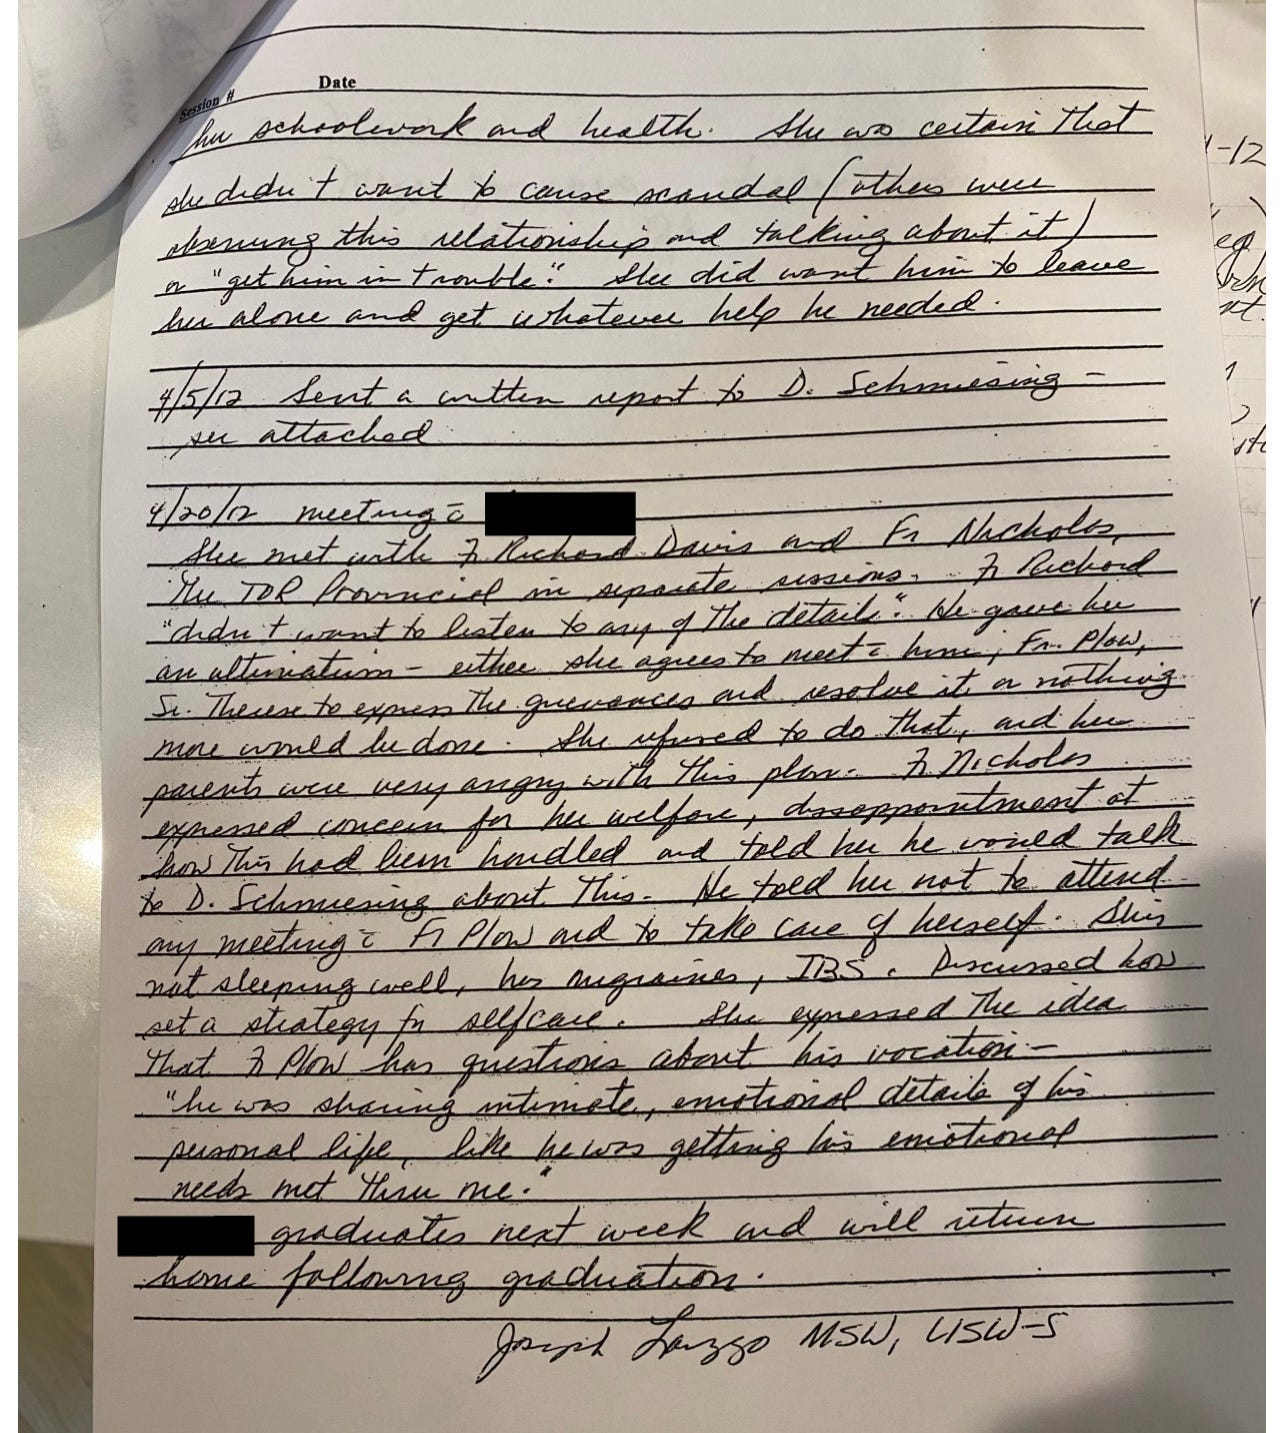 Session # Date
her schoolwork and health. She was certain that
she didn't want to cause scandal (others were
observing this relationship and talking about it)
or "get him in trouble". She did want him to leave
her alone and get whatever help he needed.
4/5/12 Sent a written report to D. Schmiesing -
see attached
4/20/12 meeting c̄
She met with Fr Richard Davis and Fr Nicholas,
the TOR Provincial in separate sessions. Fr Richard
"didn't want to listen to any of the details". He gave her
an ultimatum - either she agrees to meet c̄ him, Fr. Plow,
Sr. Therese to express the grievances and resolve it or nothing
more would be done. She refused to do that, and her
parents were very angry with this plan. Fr Nicholas
expressed concern for her welfare, dissappointment at
how this had been handled and told her he would talk
to D. Schmiesing about this. He told her not to attend
any meeting c̄ Fr Plow and to take care of herself. She is
not sleeping well, has migraines, IBS. Discussed how
set a strategy for selfcare. She expressed the idea
that Fr Plow has questions about his vocation -
"he was sharing intimate, emotional details of his
personal life, like he was getting his emotional
needs met thru me."
graduates next week and will return
home following graduation.
Joseph Lanzzo MSW, LISW-S
-12